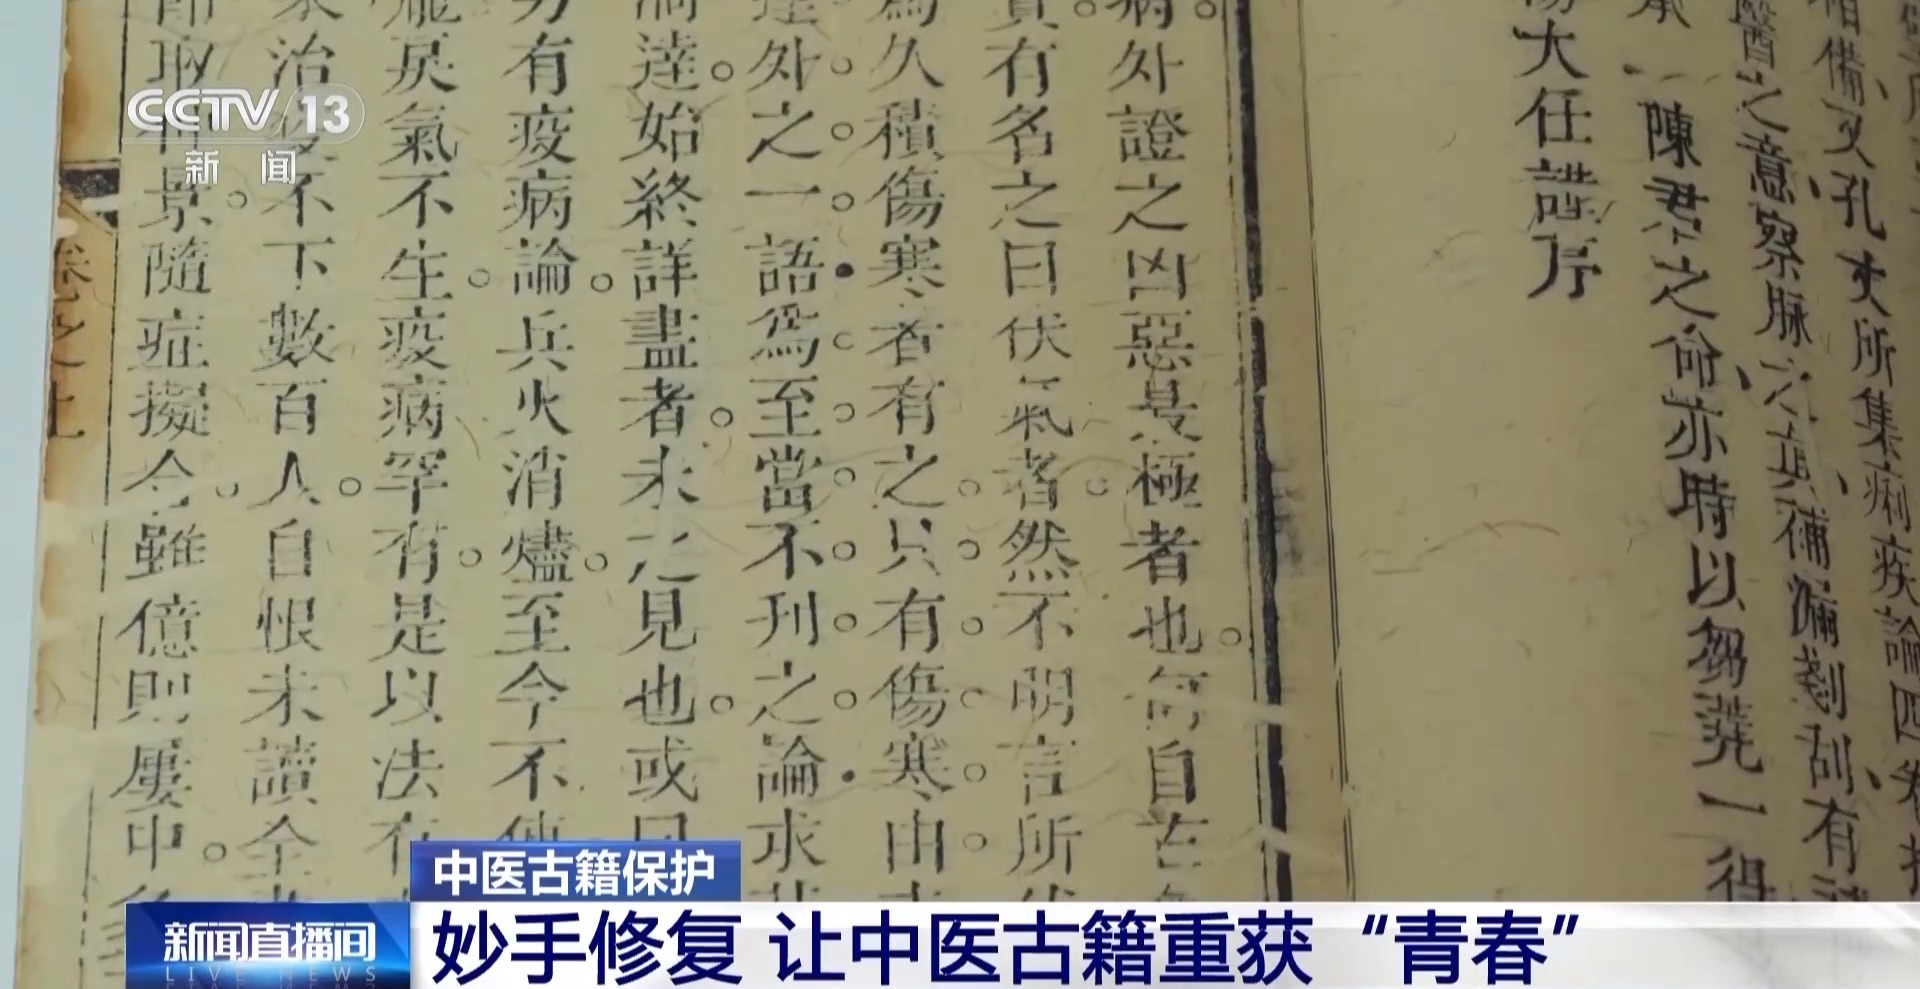 相備又孔丈所集痢疾論四卷
醫之意察脉之真補漏剗刮有
陳君之命亦時以芻蕘一得
大任誥序
病外證之凶惡是極者也每自古
有名之曰伏氣者然不明言所
爲久積傷寒者有之只有傷寒由
達外之一語爲至當不刊之論求
達始終詳盡者未之見也或曰
有疫病論兵火消燼至今不
戾氣不生疫病罕有是以法
治疫不下數百人自恨未讀全
景隨症擬令雖億則屢中
卷之上
CCTV 13
新闻
中医古籍保护
新闻直播间
LIVE NEWS
妙手修复 让中医古籍重获“青春”